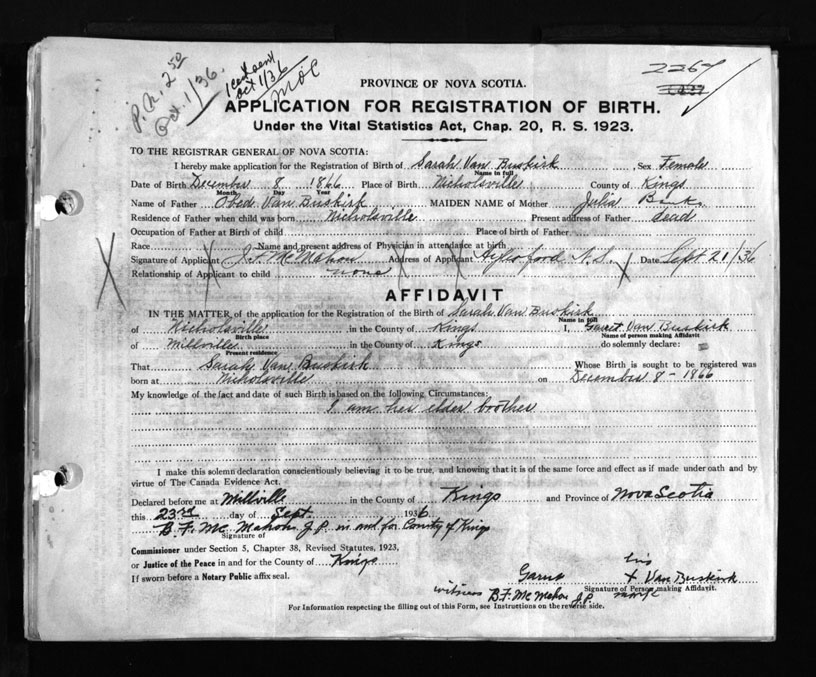 P.A. 2 50
Oct. 1/36.
1 cert sent
Oct 1/36
2267
PROVINCE OF NOVA SCOTIA.
APPLICATION FOR REGISTRATION OF BIRTH.
Under the Vital Statistics Act, Chap. 20, R. S. 1923.
TO THE REGISTRAR GENERAL OF NOVA SCOTIA:
I hereby make application for the Registration of Birth of Sarah Van Buskirk Sex Female
Name in full
Date of Birth December 8 1866 Place of Birth Nicholsville County of Kings
Month Day Year
Name of Father Obed Van Buskirk MAIDEN NAME of Mother Julia
Residence of Father when child was born Nicholsville Present address of Father dead
Occupation of Father at Birth of child Place of birth of Father
Race Name and present address of Physician in attendance at birth
Signature of Applicant McMahon Address of Applicant Aylesford N.S. Date Sept 21/36
Relationship of Applicant to child none
AFFIDAVIT
IN THE MATTER, of the application for the Registration of the Birth of Sarah Van Buskirk
Name in full
of Nicholsville in the County of Kings I, Garret Van Buskirk
Birth place Name of person making Affidavit
of Millville in the County of Kings do solemnly declare:
Present residence
That Sarah Van Buskirk Whose Birth is sought to be registered was
born at Nicholsville on December 8 - 1866
My knowledge of the fact and date of such Birth is based on the following Circumstances:
I am her elder brother
I make this solemn declaration conscientiously believing it to be true, and knowing that it is of the same force and effect as if made under oath and by
virtue of The Canada Evidence Act.
Declared before me at Millville in the County of Kings and Province of Nova Scotia
this 23rd day of Sept. 1936
B. F. McMahon J.P. in and for County of Kings
Signature of
Commissioner under Section 5, Chapter 38, Revised Statutes, 1923,
or Justice of the Peace in and for the County of Kings
If sworn before a Notary Public affix seal.
his
Garret X Van Buskirk
mark
Signature of Person making Affidavit.
witness B. F. McMahon J.P.
For Information respecting the filling out of this Form, see Instructions on the reverse side.